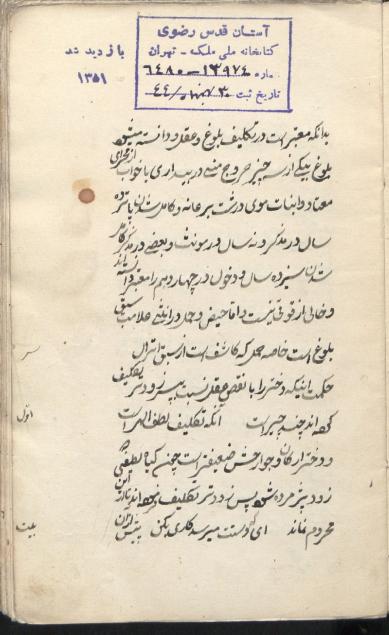 آستان قدس رضوی
کتابخانه ملی ملک - تهران
۱۳۹۷۴ - ۶۴۸۰
تاریخ ثبت
بازدید شد
۱۳۵۱
بدانکه معتبر است در تکلیف بلوغ و عقل و دانسته میشود
بلوغ بیکی از سه چیز خروج منی در بیداری یا خواب از مجرای
معتاد و انبات موی درشت بر عانه و کامل شدن پانزده
سال در مذکر و نه سال در مونث و بعضی در مذکر کامل
شدن سیزده سال و دخول در چهاردهم را معتبر دانسته‌اند
و خالی از قوتی نیست و اما حیض و حمل در انثی علامت سبق
بلوغ است خاصه حمل که کاشف است از سبق انزال
حکمت اینکه دختر را با نقص عقل نسبت بپسر زودتر تکلیف
کرده‌اند چند چیز است آنکه تکلیف لطف الهی است
و دختر ارکان و جوارحش ضعیفتر است چون گیاه لطیفی که
زود پژمرده شود پس زودتر تکلیف فرموده‌اند تا از این
محروم نماند ای که دستت میرسد کاری بکن پیش از آن
اول
بیت